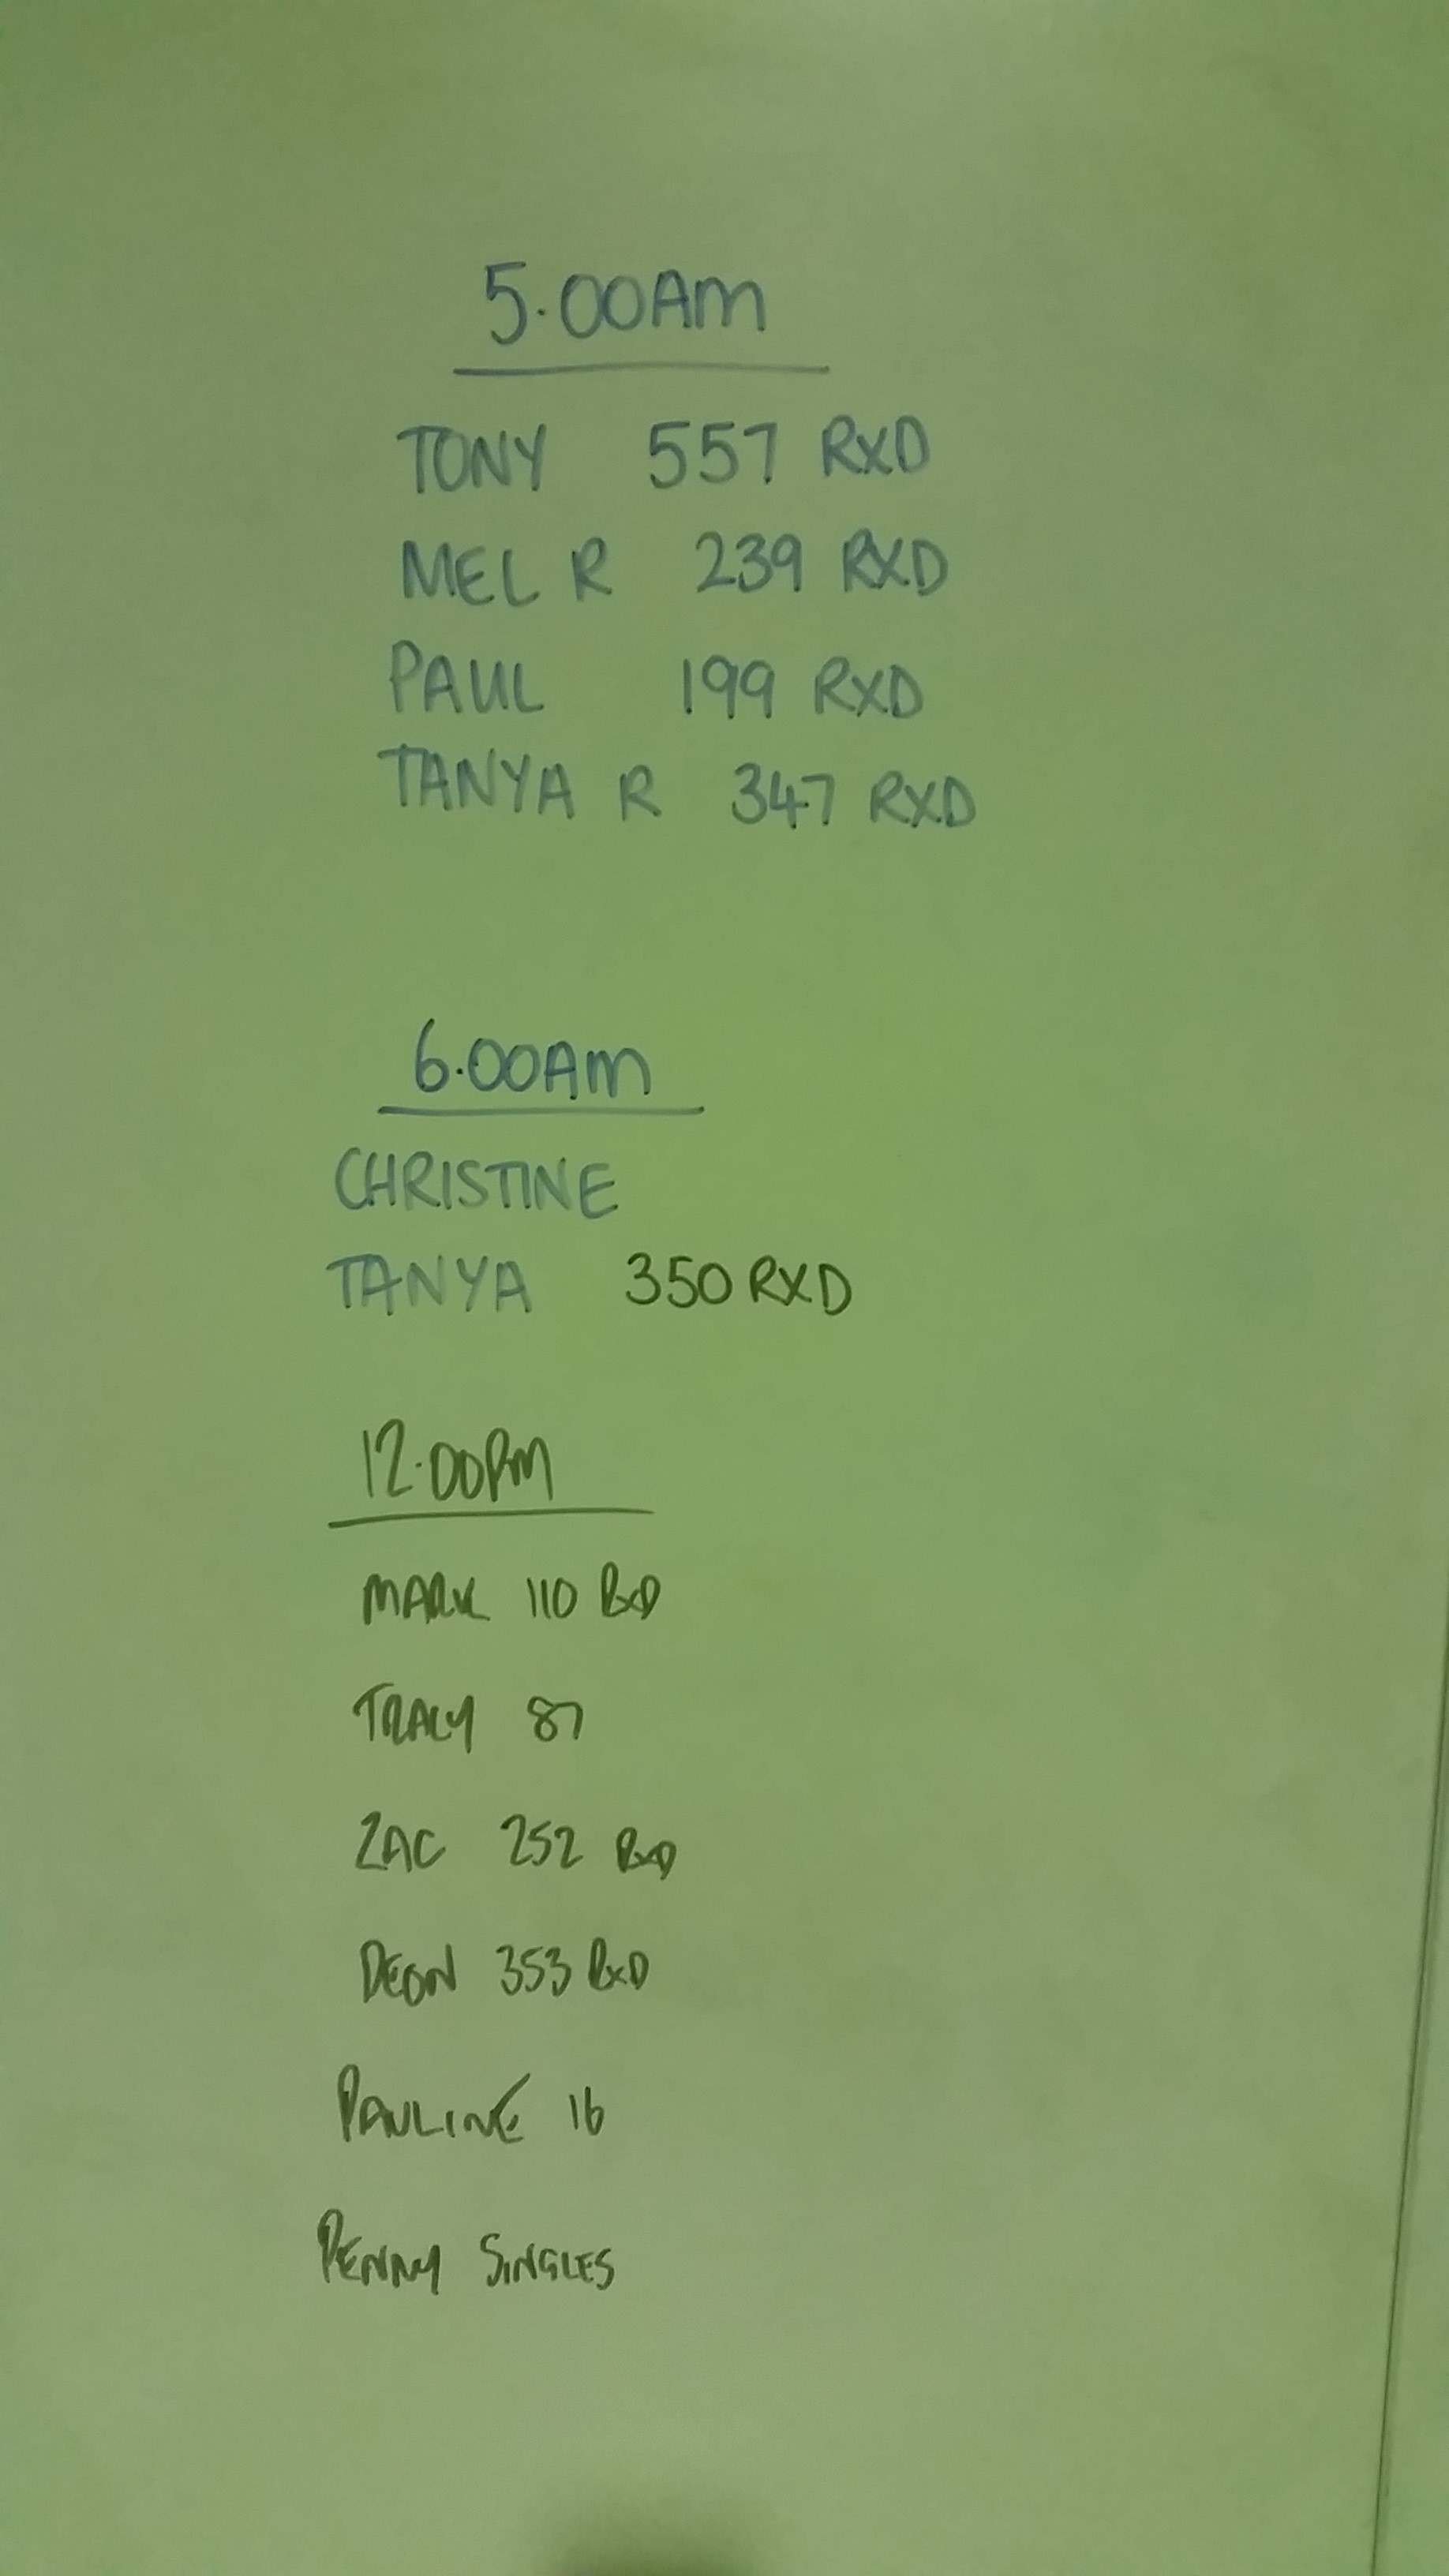 5.00AM
TONY 557 RXD
MEL R 239 RXD
PAUL 199 RXD
TANYA R 347 RXD
6.00AM
CHRISTINE
TANYA 350 RXD
12.00PM
MARK 110 RXD
TRACY 87
ZAC 252 RXD
DEON 353 RXD
PAULINE 16
PENNY SINGLES